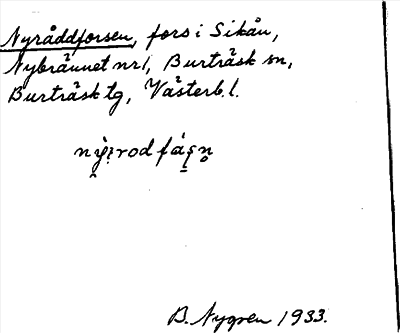 Nyråddforsen, fors i Sikån,
Nybrännet nr 1, Burträsk sn,
Burträsk tg, Västerb. l.
B. Nygren 1933.